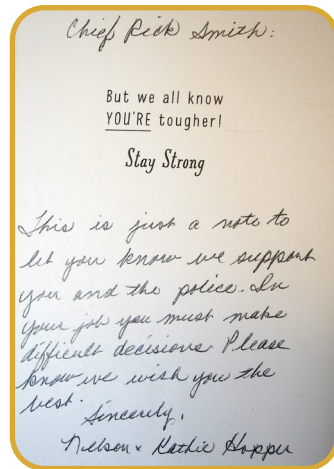 Chief Rick Smith:
But we all know
YOU'RE tougher!
Stay Strong
This is just a note to
let you know we support
you and the police. In
your job you must make
difficult decisions. Please
know we wish you the
best.
Sincerely,
Nelson & Kathie Hopper